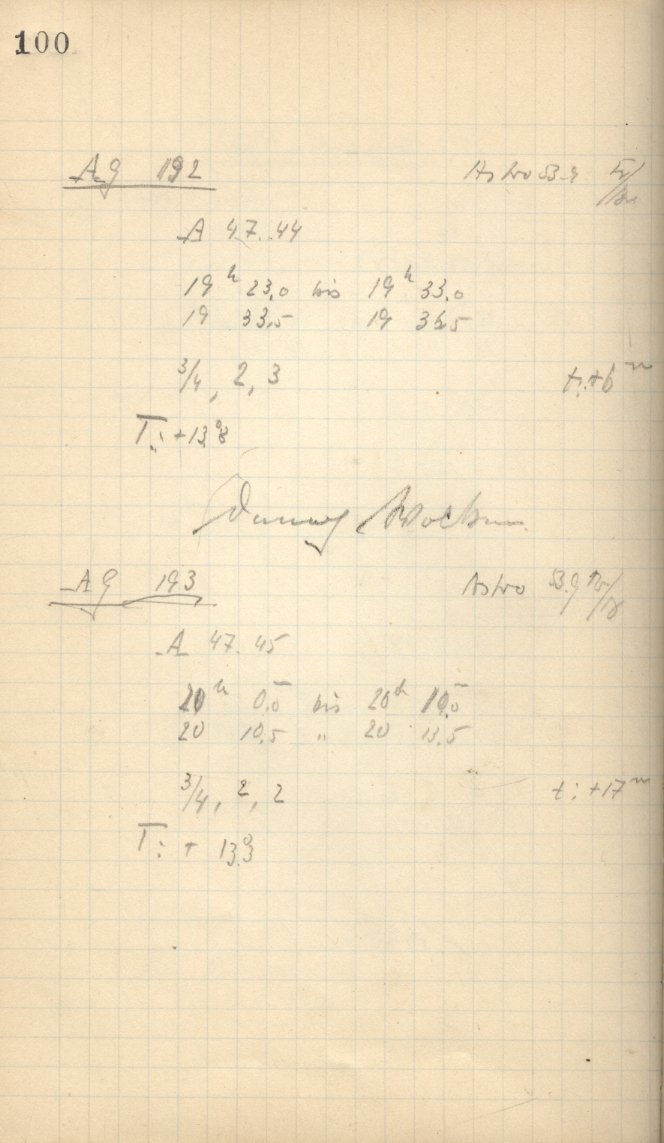 100
AG 192 Astro 53.9
A 47.44
19h 23,0 bis 19h 33,0
19 33,5 19 36,5
3/4, 2, 3 t: +6m
T: +13.8
AG 193 Astro 53.9
A 47.45
20h 0,5 bis 20h 10,0
20 10,5 " 20 13,5
3/4, 2, 2 t: +17m
T: + 13.3